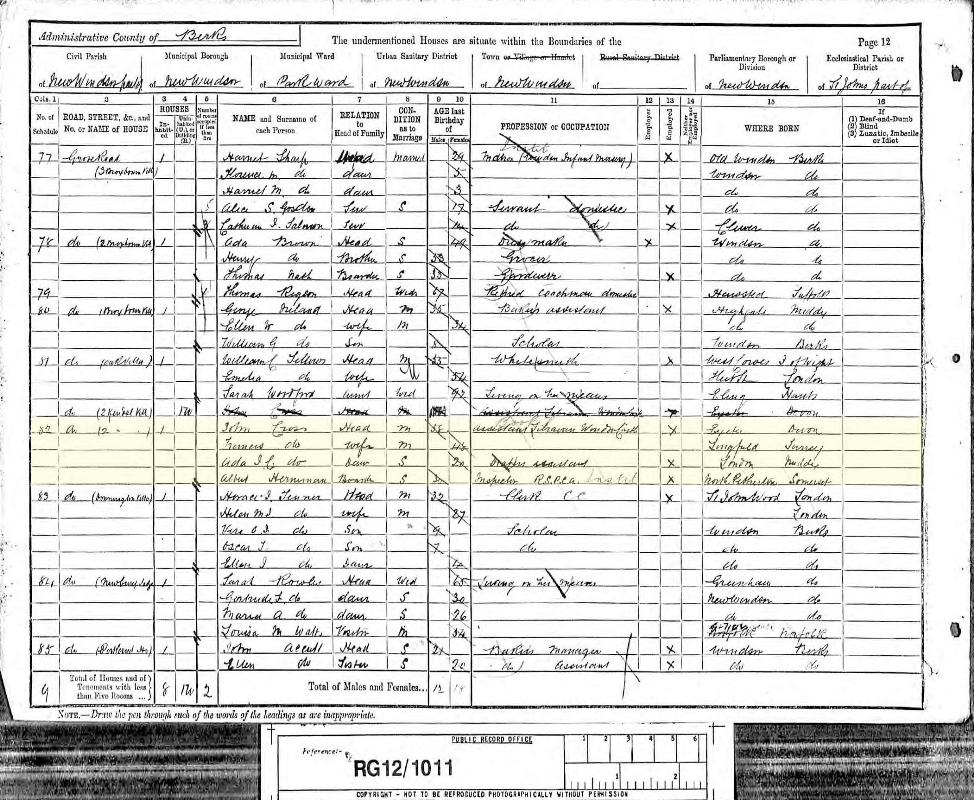 Administrative County of Berks The undermentioned Houses are situate within the Boundaries of the Page 12
Civil Parish Municipal Borough Municipal Ward Urban Sanitary District Town or Village or Hamlet Rural Sanitary District Parliamentary Borough or Division Ecclesiastical Parish or District
of New Windsor part of of New Windsor of Park Ward of New Windsor of New Windsor of of New Windsor of St Johns part of
Cols. 1 2 3 4 5 6 7 8 9 10 11 12 13 14 15 16
No. of Schedule ROAD, STREET, &c., and No. or NAME of HOUSE HOUSES Inhabited Uninhabited (U.), or Building (B.) Number of rooms occupied if less than five NAME and Surname of each Person RELATION to Head of Family CONDITION as to Marriage AGE last Birthday of Males Females PROFESSION or OCCUPATION Employer Employed Neither Employer nor Employed WHERE BORN If (1) Deaf-and-Dumb (2) Blind (3) Lunatic, Imbecile or Idiot
77 Grove Road 1 Harriet Sharp Head Married 29 Matron Infant Nursery) X Old Windsor Berks
Florence M do daur 5 Windsor do
Harriet M do daur 3 do do
Alice S. Serv S 17 Servant domestic X do do
Serv do do X Clewer do
78 do 1 Ada Brown Head S 49 Dress maker X Windsor do
Henry do Brother S 53 Grocer do
Thomas Nash Boarder S 33 Gardener X do do
79 Thomas Head Widr 67 Retired Coachman domestic Suffolk
80 do 1 George Ireland Head M 35 Bakers assistant X Highgate Middx
Ellen W do wife M 34 do do
William G do Son 8 Windsor Berks
81 do 1 William C Fellows Head M 55 Whitesmith West Cowes I of Wight
Emelia do Wife 54 London
Sarah Woodford Aunt Wid 92 Living on her means Eling Hants
do 1U John Cross Head M X Exeter Devon
82 do (2 " ) 1 John Cross Head M 38 Assistant Librarian Windsor Castle X Exeter Devon
do Wife M 48 Lingfield Surrey
Ada I C do Daur S 20 Drapers assistant X London Middx
Albert Herniman Boarder S Inspector R.S.P.C.A. X North Petherton Somerset
83 do 1 Horace I. Head M 32 Clerk C C X St John Wood London
Helen M J do wife M 27 London
do Son 9 Scholar Windsor Berks
Oscar do Son 7 do do do
Ellen do Daur 4 do do
84 do 1 Sarah Head Wid 65 Living on her means Greenham do
Gertrude F. do daur S 30 New Windsor do
Maria A. do daur S 26 do do
Louisa M Watts Visitor M 34 Norfolk
85 do 1 John Head S 21 Bakers Manager X Windsor Berks
Ellen do Sister S 20 do Assistant X do do
9 Total of Houses and of Tenements with less than Five Rooms 8 1U 2 Total of Males and Females... 12 19
NOTE.—Draw the pen through such of the words of the headings as are inappropriate.
PUBLIC RECORD OFFICE
Reference:- RG12/1011
1 2 3 4 5 6
1 2
COPYRIGHT - NOT TO BE REPRODUCED PHOTOGRAPHICALLY WITHOUT PERMISSION